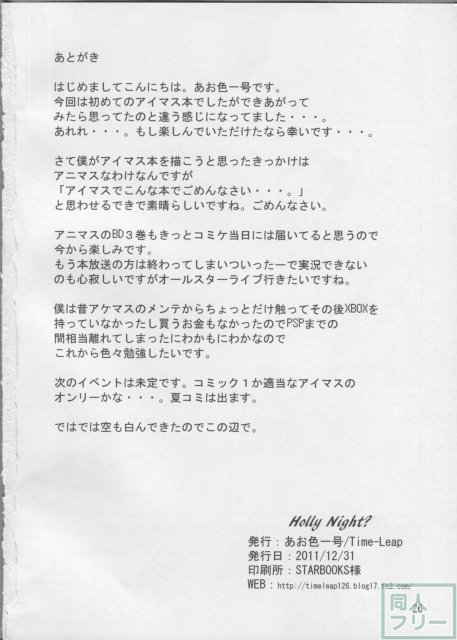 あとがき
はじめましてこんにちは。あお色一号です。
今回は初めてのアイマス本でしたができあがって
みたら思ってたのと違う感じになってました・・・。
あれれ・・・。もし楽しんでいただけたなら幸いです・・・。
さて僕がアイマス本を描こうと思ったきっかけは
アニマスなわけなんですが
「アイマスでこんな本でごめんなさい・・・。」
と思わせるできで素晴らしいですね。ごめんなさい。
アニマスのBD３巻もきっとコミケ当日には届いてると思うので
今から楽しみです。
もう本放送の方は終わってしまいついった一で実況できない
のも心寂しいですがオールスターライブ行きたいですね。
僕は昔アケマスのメンテからちょっとだけ触ってその後XBOXを
持っていなかったし買うお金もなかったのでPSPまでの
間相当離れてしまったにわかもにわかなので
これから色々勉強したいです。
次のイベントは未定です。コミック１か適当なアイマスの
オンリーかな・・・。夏コミは出ます。
ではでは空も白んできたのでこの辺で。
Holly Night?
発行：あお色一号/Time-Leap
発行日：2011/12/31
印刷所：STARBOOKS様
WEB：http://timeleap126.blog17.fc2.com/
26
同人
フリー